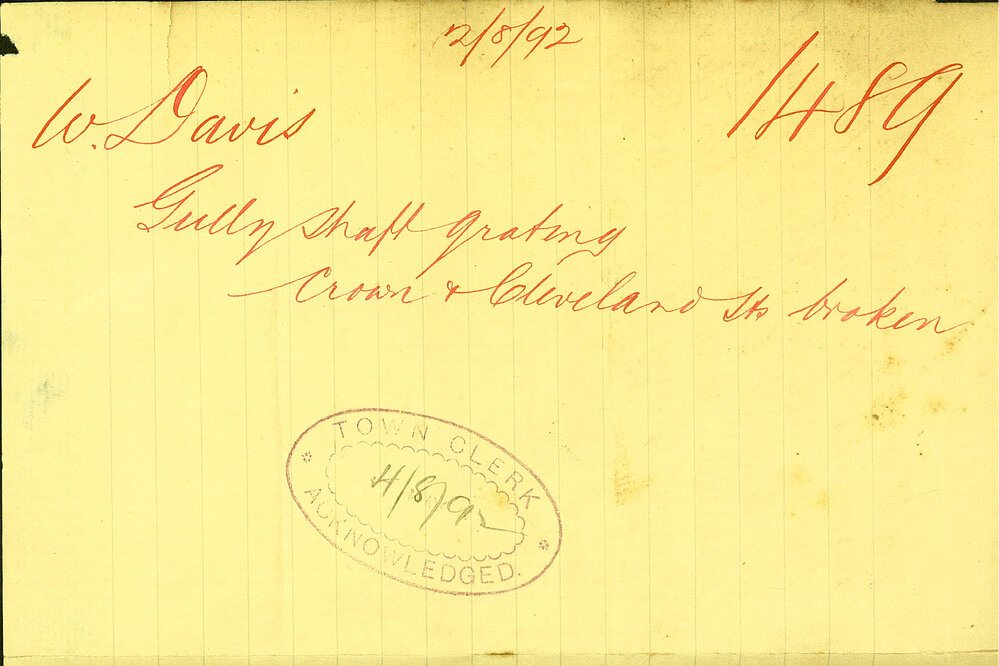 2/8/92
1489
W. Davis
Gully shaft grating
Crown & Cleveland Sts broken
TOWN CLERK
4/8/92
ACKNOWLEDGED.